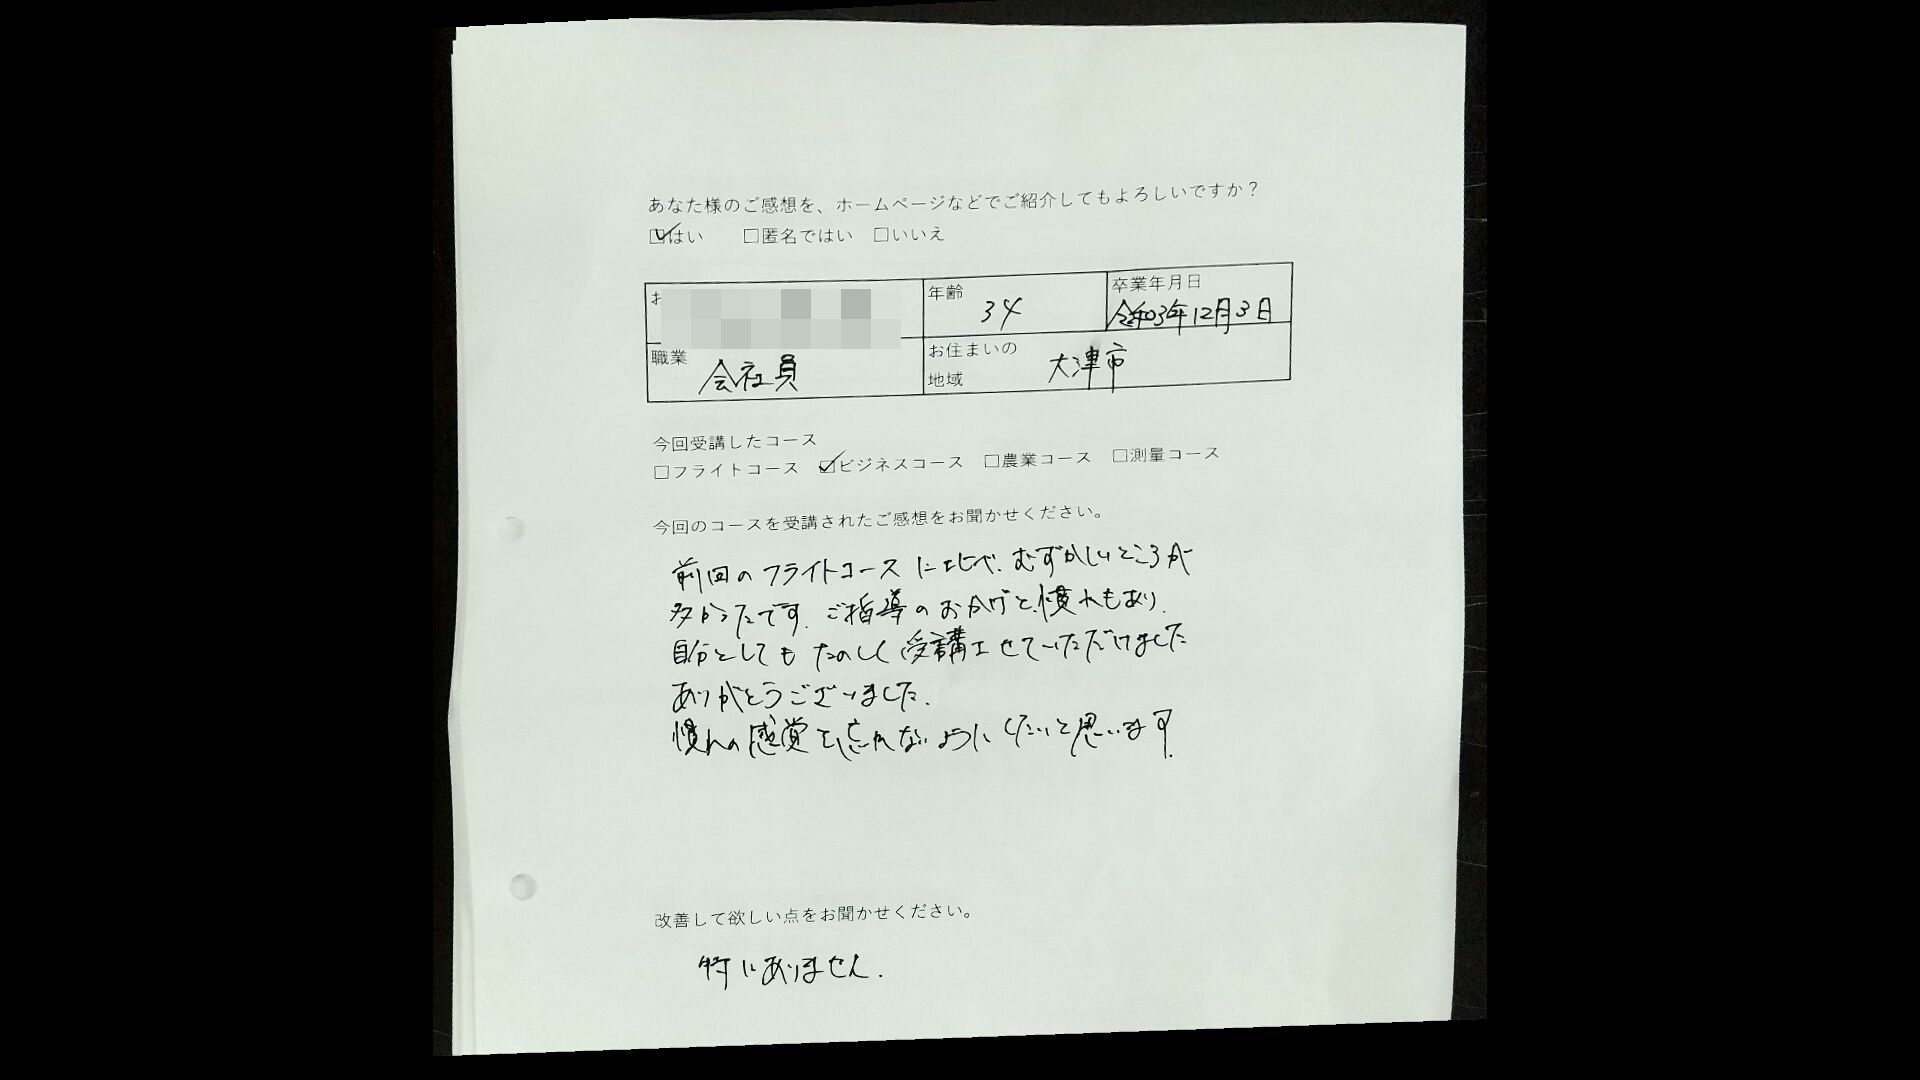 あなた様のご感想を、ホームページなどでご紹介してもよろしいですか？
☑はい　□匿名ではい　□いいえ
年齢 34 卒業年月日 令和03年12月3日
職業 会社員 お住まいの地域 大津市
今回受講したコース
□フライトコース　☑ビジネスコース　□農業コース　□測量コース
今回のコースを受講されたご感想をお聞かせください。
前回のフライトコースに比べ、むずかしいところが
多かったです。ご指導のおかげと、慣れもあり、
自分としてもたのしく受講させていただけました
ありがとうございました。
慣れの感覚を忘れないようにしたいと思います。
改善して欲しい点をお聞かせください。
特にありません。